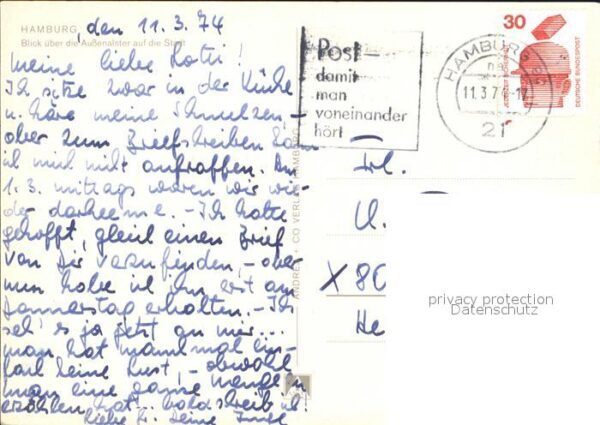 HAMBURG, den 11.3.74
Blick über die Außenalster auf die Stadt
Meine liebe
Ich sitze zwar in der Küche
u. höre meine
aber zum Briefschreiben kann
ich mich nicht aufraffen. Am
1.3. mittags waren wir wie-
der daheime. - Ich hatte
gehofft, gleich einen Brief
von Dir vorzufinden, - aber
nun habe ich ihn erst am
Donnerstag erhalten. - Ich
seh's ja jetzt an mir...
man hat manchmal ein-
fach keine Lust, - obwohl
man eine ganze Menge zu
erzählen hat. bald schreib ich!
liebe Gr. Deine
ANDRES + CO VERLAG HAMBURG
Post-
damit
man
voneinander
hört
HAMBURG
11.3.74-17
21
30
DEUTSCHE BUNDESPOST
Frl.
U.
X 80
He
privacy protection
Datenschutz